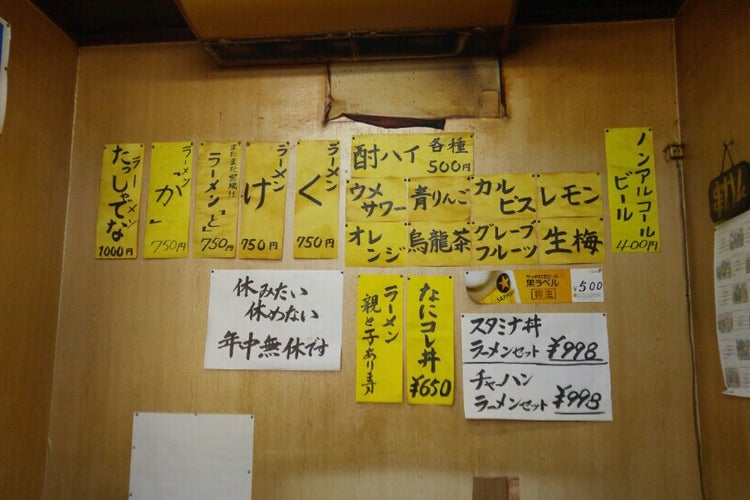 ラーメン
たっしゃでな
1000円
ラーメン
「が」
750円
まだまだ登場!!
ラーメン「と」
750円
ラーメン
け
750円
ラーメン
く
750円
酎ハイ 各種
500円
ウメ
サワー
青りんご
カル
ピス
レモン
オレ
ンジ
烏龍茶
グレープ
フルーツ
生梅
ノンアルコール
ビール
400円
休みたい
休めない
年中無休です
ラーメン
親と子あります
なにコレ丼
¥650
サッポロ生ビール
黒ラベル
SAPPORO
¥500
スタミナ丼
ラーメンセット ¥998
チャーハン
ラーメンセット ¥998